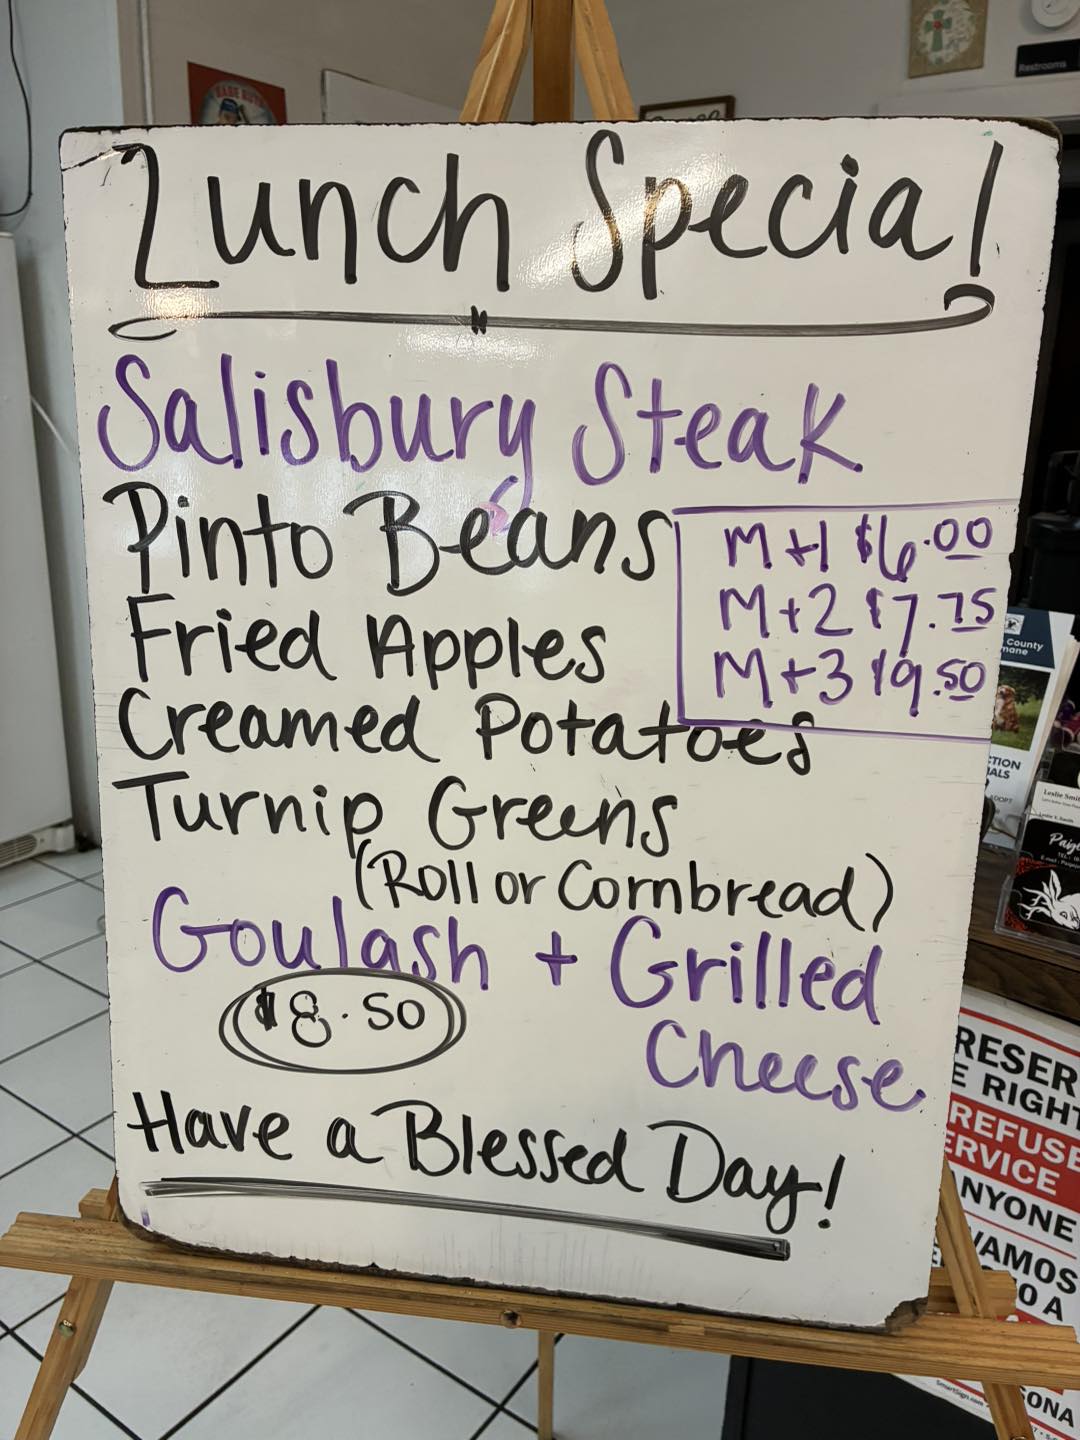 BABE RUTH
Restrooms
Lunch Special
Salisbury Steak
Pinto Beans
M+1 $6.00
M+2 $7.75
M+3 $9.50
Fried Apples
Creamed Potatoes
Turnip Greens
(Roll or Cornbread)
Goulash + Grilled
Cheese
$8.50
Have a Blessed Day!
County
mane
CTION
ALS
Leslie Smi
Paig
RESER
E RIGHT
REFUSE
ERVICE
NYONE
VAMOS
O A
SONA